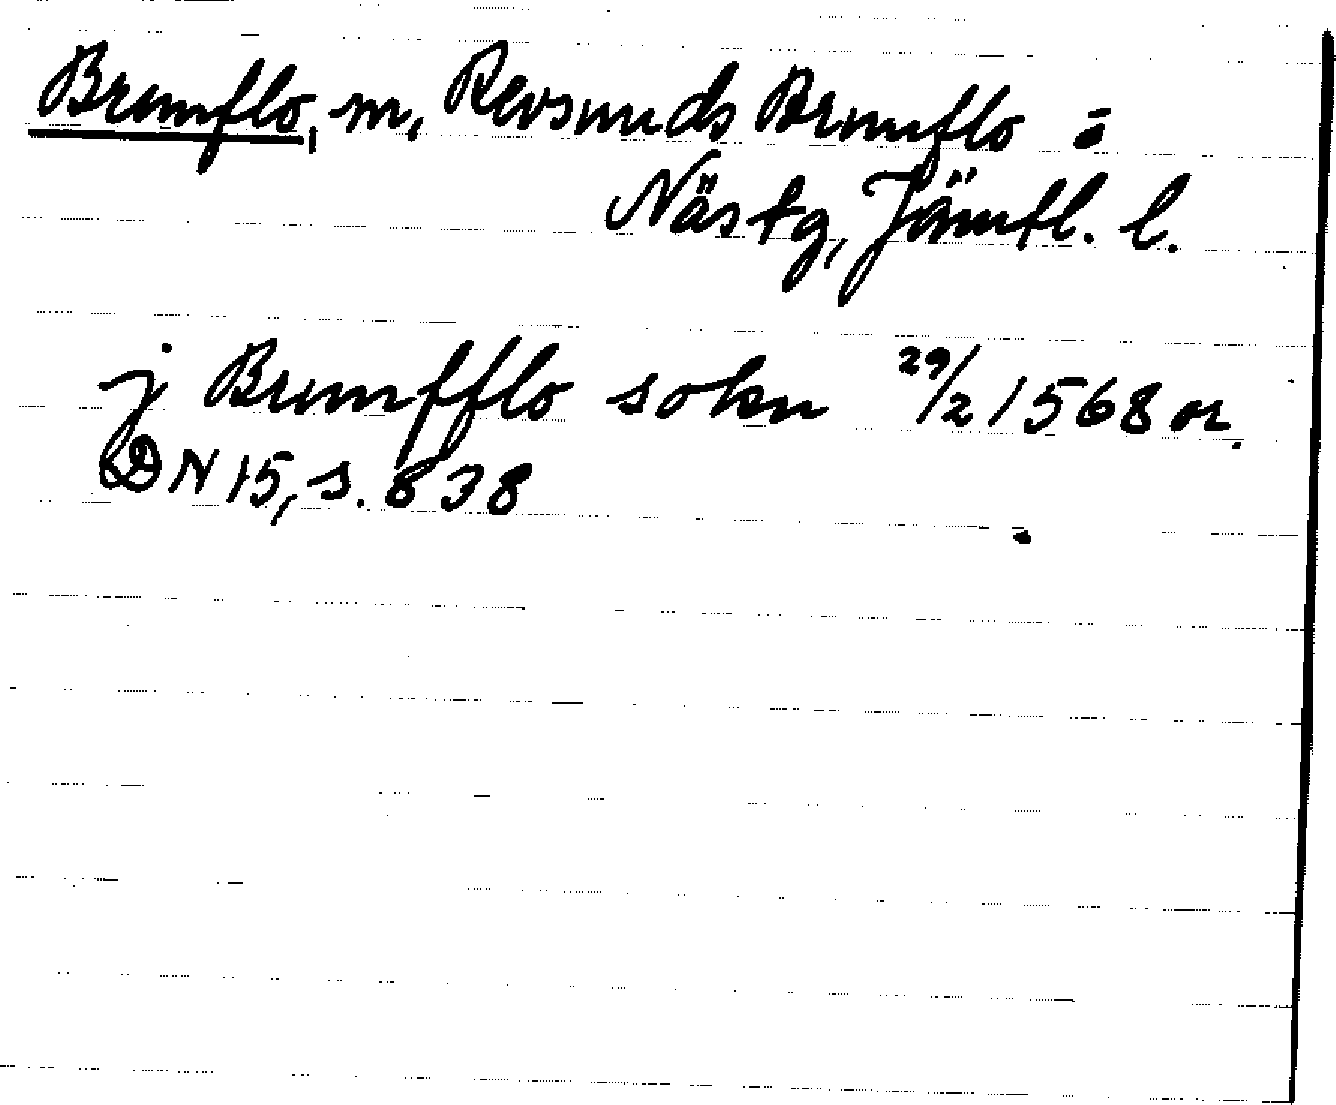 Brunflo, m, Revsunds Brunflo =
Nästg, Jämtl. l.
j Brumfflo sokn 29/2 1568 or.
DN 15, s. 838